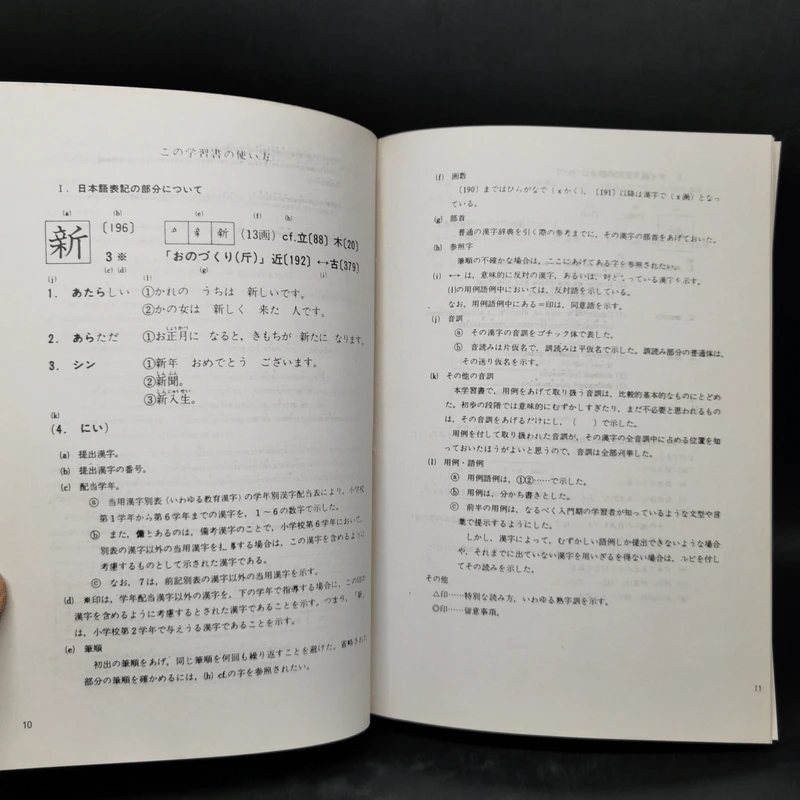 この学習書の使い方
I. 日本語表記の部分について
(a) (b) (e) (f) (h)
新 〔196〕 (13画) cf.立〔88〕 木〔20〕
3 ※ 「おのづくり(斤)」近〔192〕 ←→古〔379〕
(c) (d) (g) (i)
(j) (l)
1. あたらしい ①かれの うちは 新しいです。
②かの女は 新しく 来た 人です。
しょうがつ
2. あらただ ①お正月に なると、きもちが 新たに なります。
3. シン ①新年 おめでとう ございます。
しんぶん
②新聞。
しんにゅうせい
③新入生。
(k)
(4. にい)
(a) 提出漢字。
(b) 提出漢字の番号。
(c) 配当学年。
ⓐ 当用漢字別表(いわゆる教育漢字)の学年別漢字配当表により、小学校
第1学年から第6学年までの漢字を、1〜6の数字で示した。
ⓑ また、備とあるのは、備考漢字のことで、小学校第6学年において、
別表の漢字以外の当用漢字を指導する場合は、この漢字を含めるように
考慮するものとして示された漢字である。
ⓒ なお、7は、前記別表の漢字以外の当用漢字を示す。
(d) ※印は、学年配当漢字以外の漢字を、下の学年で指導する場合に、この印の
漢字を含めるように考慮するとされた漢字であることを示す。つまり、「新」
は、小学校第2学年で与えうる漢字であることを示す。
(e) 筆順
初出の筆順をあげ、同じ筆順を何回も繰り返すことを避けた。省略された
部分の筆順を確かめるには、(h) cf.の字を参照されたい。
10
(f) 画数
〔190〕まではひらがなで(xかく)、〔191〕以降は漢字で(x画)となっ
ている。
(g) 部首
普通の漢字辞典を引く際の参考までに、その漢字の部首をあげておいた。
(h) 参照字
筆順の不確かな場合は、ここにあげてある字を参照されたい。
(i) ←→ は、意味的に反対の漢字、あるいは、対となっている漢字を示す。
(l)の用例語例中においては、反対語を示している。
なお、用例語例中にある=印は、同意語を示す。
(j) 音訓
ⓐ その漢字の音訓をゴチック体で表した。
ⓑ 音読みは片仮名で、訓読みは平仮名で示した。訓読み部分の普通体は、
その送り仮名を示す。
(k) その他の音訓
本学習書で、用例をあげて取り扱う音訓は、比較的基本的なものにとどめ
た。初歩の段階では意味的にむずかしすぎたり、まだ不必要と思われるもの
は、その音訓をあげるだけにし、( )で示した。
用例を付して取り扱われた音訓が、その漢字の全音訓中に占める位置を知
っておいたほうがよいと思うので、音訓は全部列挙した。
(l) 用例・語例
ⓐ 用例語例は、①②……で示した。
ⓑ 用例は、分かち書きとした。
ⓒ 前半の用例は、なるべく入門期の学習者が知っているような文型や言
葉で提示するようにした。
しかし、漢字によって、むずかしい語例しか提出できないような場合
や、それまでに出ていない漢字を用いざるを得ない場合は、ルビを付し
てその読みを示した。
その他
△印……特別な読み方、いわゆる熟字訓を示す。
◎印……留意事項。
11